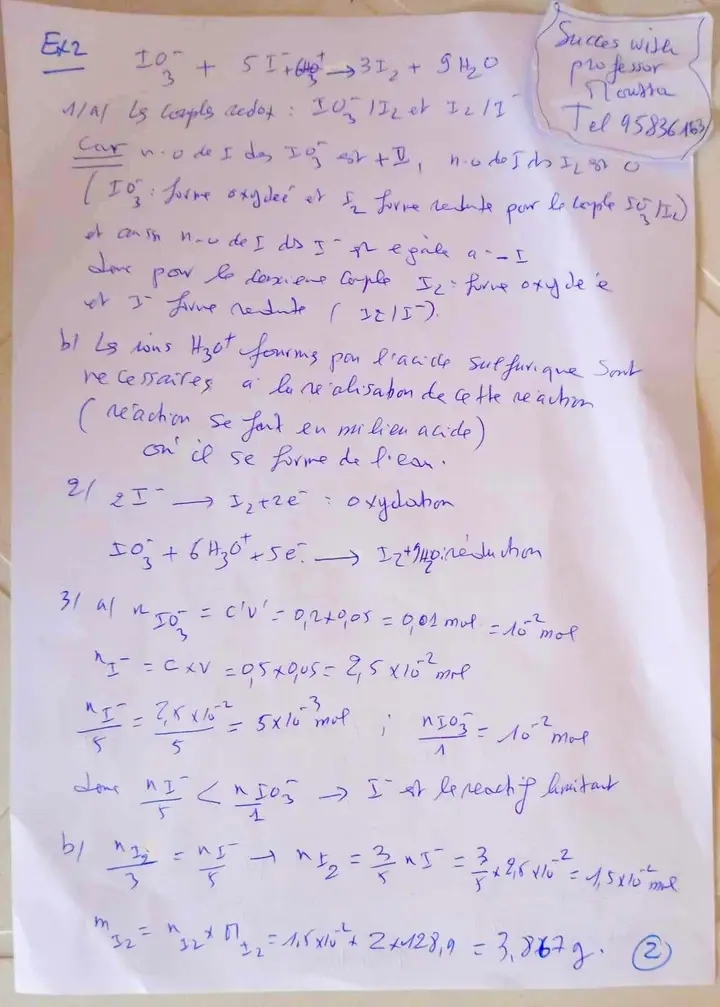 Ex2
IO₃⁻ + 5I⁻ + 6H₃O⁺ → 3I₂ + 9H₂O
Succes with
professor
Moussa
Tel 95836163
1/a) Ls couples redox : IO₃⁻/I₂ et I₂/I⁻
Car n.o de I ds IO₃⁻ est +V, n.o de I ds I₂ est 0
(IO₃⁻: forme oxydée et I₂ forme reduite pour le couple IO₃⁻/I₂)
et aussi n.o de I ds I⁻ est egale a -I
donc pour le deuxieme couple I₂: forme oxydée
et I⁻ forme reduite (I₂/I⁻).
b) Ls ions H₃O⁺ fournis par l'acide sulfurique sont
necessaires a la réalisation de cette réaction
(réaction se fait en milieu acide)
où il se forme de l'eau.
2/ 2I⁻ → I₂+2e⁻ : oxydation
IO₃⁻ + 6H₃O⁺ + 5e⁻ → I₂+9H₂O: réduction
3/ a/ n IO₃⁻ = C'V' = 0,2×0,05 = 0,01 mol = 10⁻² mol
nI⁻ = C×V = 0,5×0,05 = 2,5×10⁻² mol
nI⁻/5 = 2,5×10⁻²/5 = 5×10⁻³ mol ; nIO₃⁻/1 = 10⁻² mol
donc nI⁻/5 < nIO₃⁻/1 → I⁻ est le reactif limitant
b) nI₂/3 = nI⁻/5 → nI₂ = 3/5 nI⁻ = 3/5 × 2,5×10⁻² = 1,5×10⁻² mol
mI₂ = nI₂ × MI₂ = 1,5×10⁻² × 2×128,9 = 3,867g.
2